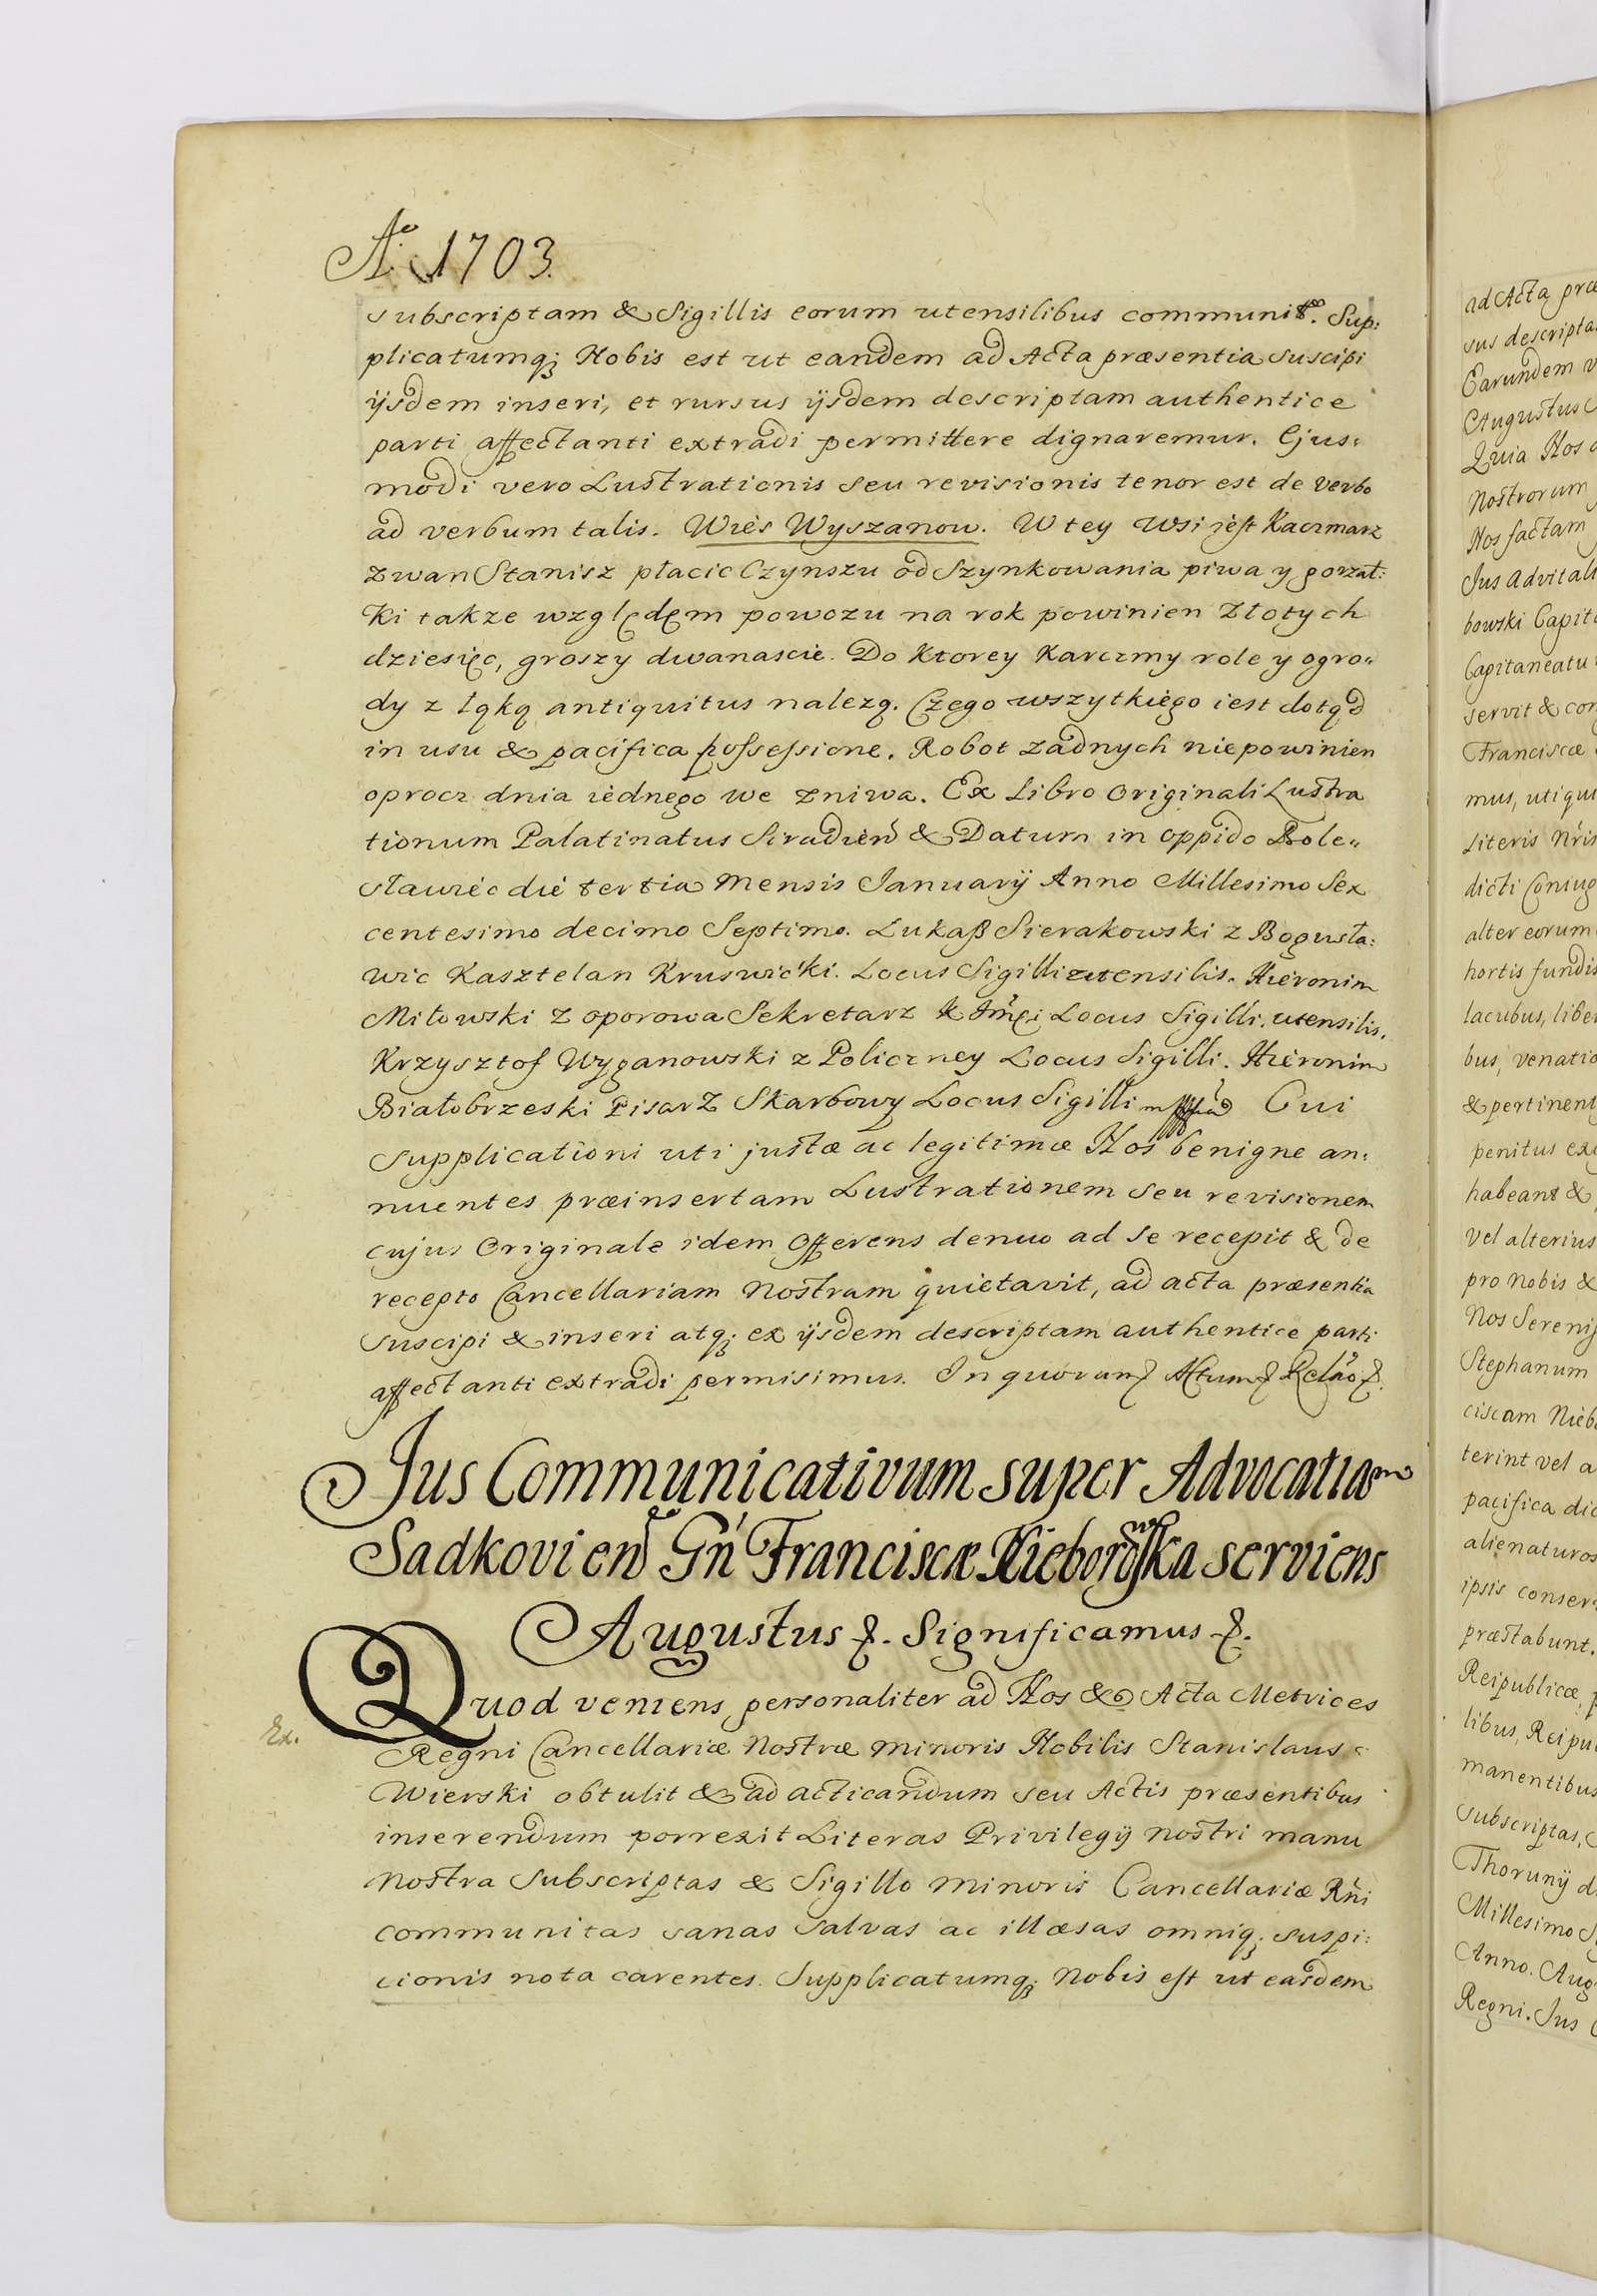 Aº 1703.
subscriptam & Sigillis eorum utensilibus communit. Sup:
plicatumq; Nobis est ut eandem ad Acta præsentia suscipi
ijsdem inseri, et rursus ijsdem descriptam authentice
parti affectanti extradi permittere dignaremur. Ejus:
modi vero Lustrationis seu revisionis tenor est de verbo
ad verbum talis. Wies Wyszanow. W tey wsi jest Kaczmarz
zwan Stanisz płacic Czynszu od Szynkowania piwa y gorzał:
ki takze względem powozu na rok powinien Złotych
dziesięc, groszy dwanascie. Do Ktorey Karczmy role y ogro„
dy z łąką antiquitus nalezą. Czego wszytkiego iest dotąd
in usu & pacifica possessione. Robot zadnych niepowinien
oprocz dnia iednego we zniwa. Ex Libro Originali Lustra
tionum Palatinatus Siradien & Datum in oppido Bole„
sławiec die tertia Mensis Januarij Anno Millesimo Sex
centesimo decimo Septimo. Lukaß Sierakowski z Bogusła:
wic Kasztelan Kruswicki. Locus Sigilli utensilis. Hieronim
Miłowski z oporowa Sekretarz K Jmci Locus Sigilli utensilis.
Krzysztof Wyganowski z Policzney Locus Sigilli. Hieronim
Białobrzeski Pisarz Skarbowy Locus Sigilli Cui
supplicationi uti justæ ac legitimæ Nos benigne an:
nuentes præinsertam Lustrationem seu revisionem
cujus Originale idem Offerens denuo ad se recepit & de
recepto Cancellariam Nostram quietavit, ad acta præsentia
suscipi & inseri atq; ex ijsdem descriptam authentice parti
affectanti extradi permisimus. In quorum &. Actum &. Relao &.
Jus Communicativum super Advocatiam
Sadkovien Gn Franciscæ Nieborowska serviens
Augustus &. Significamus &.
Quod veniens personaliter ad Nos & Acta Metrices
Ex.
Regni Cancellariæ Nostræ minoris Nobilis Stanislaus
Wierski obtulit & ad acticandum seu Actis præsentibus
inserendum porrexit Literas Privilegij nostri manu
Nostra Subscriptas & Sigillo minoris Cancellariæ Rni
communitas sanas salvas ac illæsas omniq; suspi:
cionis nota carentes. Supplicatumq; Nobis est ut easdem
ad Acta præ
sus descripta
Earundem v
Augustus
Quia Nos
Nostrorum
Nos factam
Jus advitali
bowski Capit
Capitaneatu
servit & con
Franciscæ
mus, uti qui
Literis Nris
dicti Coniug
alter eorum
hortis fundis
lacubus, libe
bus, venatio
& pertinent
penitus ex
habeant &
vel alterius
pro nobis &
Nos Sereniss
Stephanum
ciscam Niebo
terint vel a
pacifica
alienaturos
ipsis conser
præstabunt.
Reipublicæ,
libus, Reipu
manentibus
subscriptas,
Thorunij d
Millesimo S
Anno. Aug
Regni. Jus